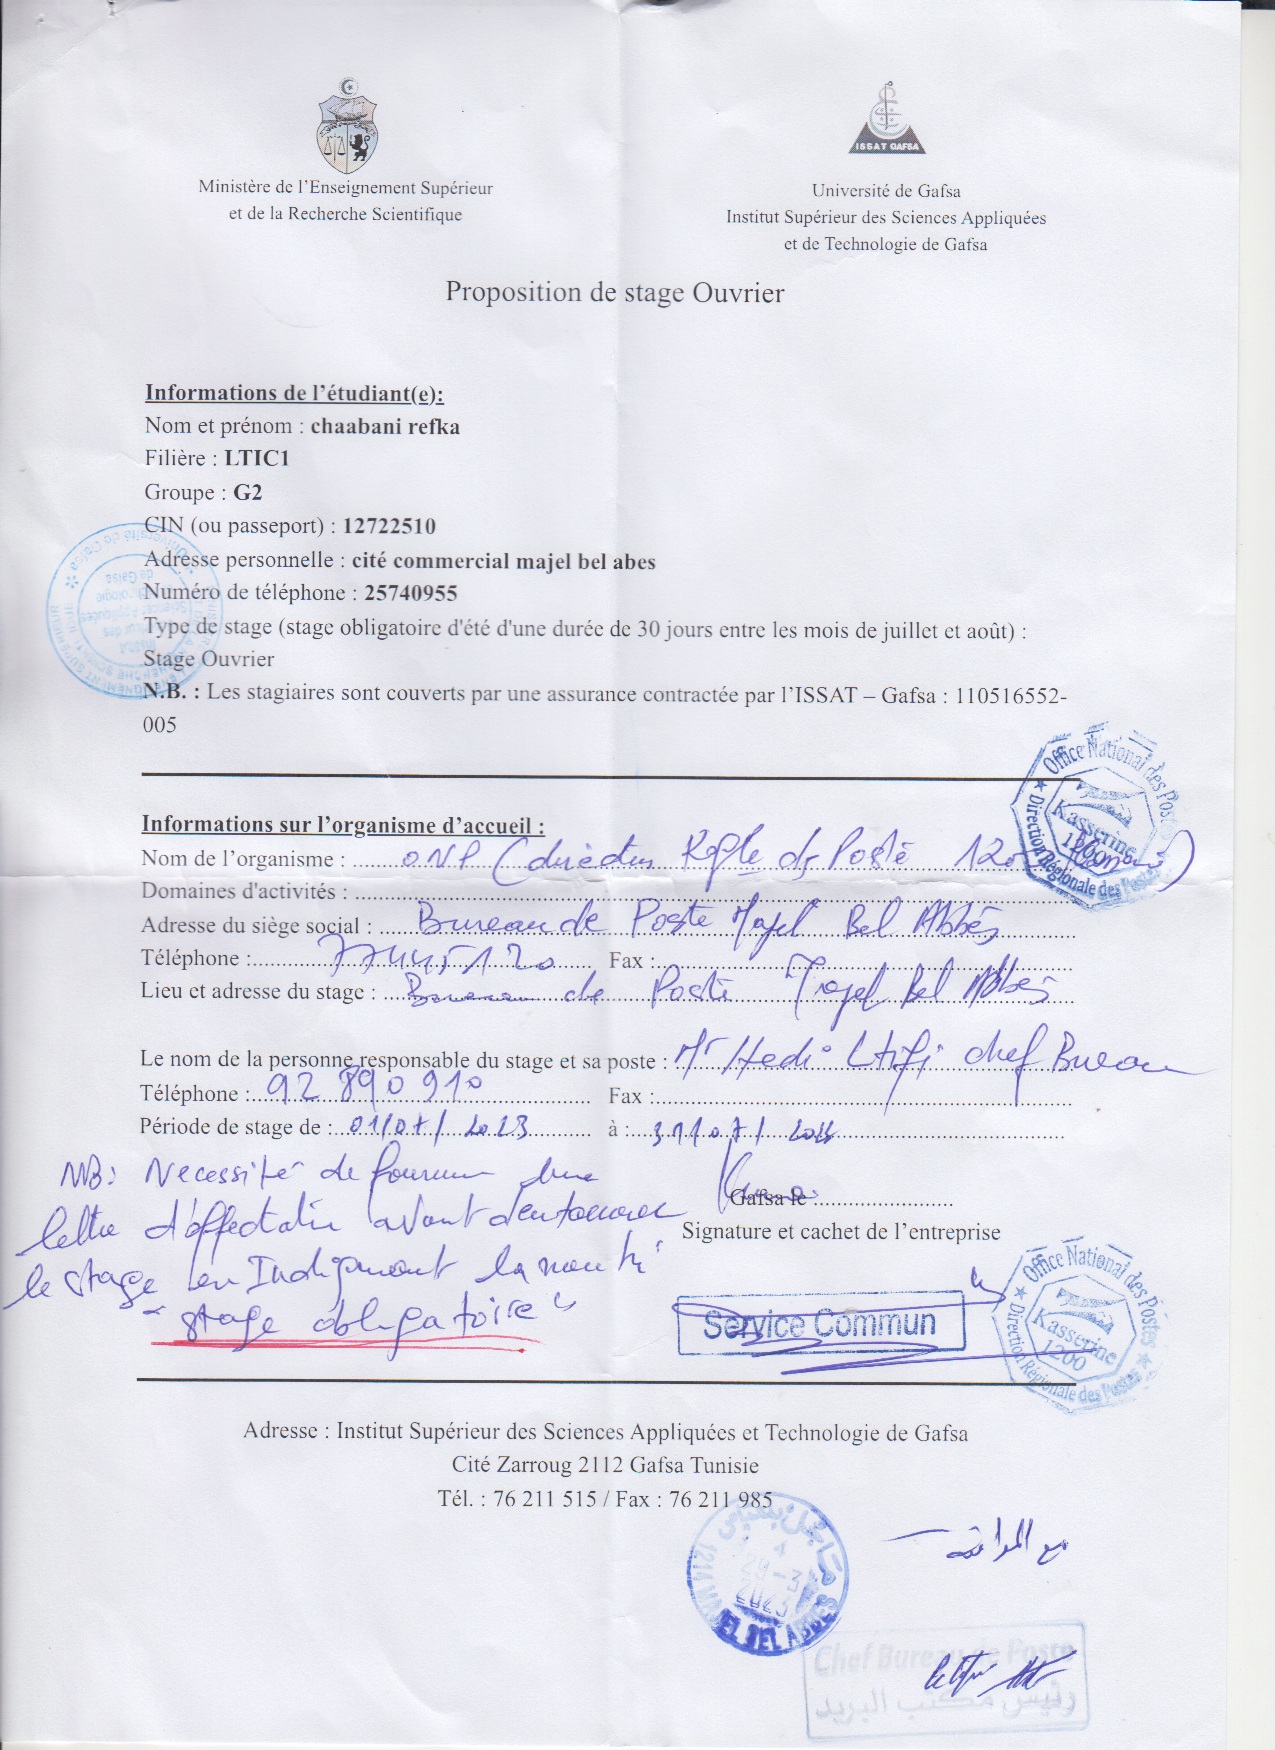 ISSAT GAFSA
Ministère de l'Enseignement Supérieur
et de la Recherche Scientifique
Université de Gafsa
Institut Supérieur des Sciences Appliquées
et de Technologie de Gafsa
Proposition de stage Ouvrier
Informations de l'étudiant(e):
Nom et prénom : chaabani refka
Filière : LTIC1
Groupe : G2
CIN (ou passeport) : 12722510
Adresse personnelle : cité commercial majel bel abes
Numéro de téléphone : 25740955
Type de stage (stage obligatoire d'été d'une durée de 30 jours entre les mois de juillet et août) :
Stage Ouvrier
N.B. : Les stagiaires sont couverts par une assurance contractée par l'ISSAT – Gafsa : 110516552-
005
Office National des Postes
Kasserine
1200
Direction Régionale des Postes
Informations sur l'organisme d'accueil :
Nom de l'organisme : ONP (direction Rgle des Poste 1200
Domaines d'activités :
Adresse du siège social : Bureau de Poste Majel Bel Abbès
Téléphone : 77445120 Fax :
Lieu et adresse du stage : Bureau de Poste Majel Bel Abbès
Le nom de la personne responsable du stage et sa poste : Mr Hedi Ltifi chef Bureau
Téléphone : 92 890 910 Fax :
Période de stage de : 01/07/2023 à : 31/07/
NB: Necessité de fournir une
lettre d'affectation avant d'entamer
le stage en Indiquant la mention
"stage obligatoire"
Gafsa le
Signature et cachet de l'entreprise
Service Commun
Office National des Postes
Kasserine
1200
Direction Régionale des Postes
Adresse : Institut Supérieur des Sciences Appliquées et Technologie de Gafsa
Cité Zarroug 2112 Gafsa Tunisie
Tél. : 76 211 515 / Fax : 76 211 985
مع الموافقة
2023
BEL ABBES
Chef Bureau de Poste
رئيس مكتب البريد